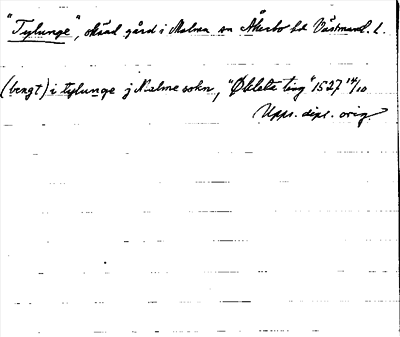 "Tylunge", okänd gård i Malma sn Åkerbo hd Västmanl. l.
(bengt) i tylunge j Malme sokn, "Økbbta ting" 1527 14/10
Upps. dipl. orig.